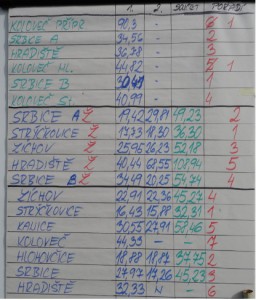 1. 2. POŘADÍ
KOLOVEČ PŘÍPR. 91,3 - 6 1
SRBICE A 34,56 - 2
HRADIŠTĚ 36,78 - 3
KOLOVEČ ML. 44,82 - 5 1
SRBICE B - 1
KOLOVEČ St. 40,99 - 4
SRBICE A Ž 19,42 29,81 49,23 2
STRÝČKOVCE Ž 18,30 36,30 1
ŽÍCHOV Ž 25,95 26,23 52,18 3
HRADIŠTĚ Ž 40,44 68,55 108,94 5
SRBICE B Ž 34,49 20,25 54,74 4
ŽÍCHOV 22,91 22,36 45,27 4
STRÝČKOVCE 16,43 15,88 32,31 1
KANICE 30,55 27,91 58,46 5
KOLOVEČ 44,33 - - 7
HLOHOVČICE 18,88 18,87 37,75 2
SRBICE 27,97 17,26 45,23 3
HRADIŠTĚ 32,33 N - 6